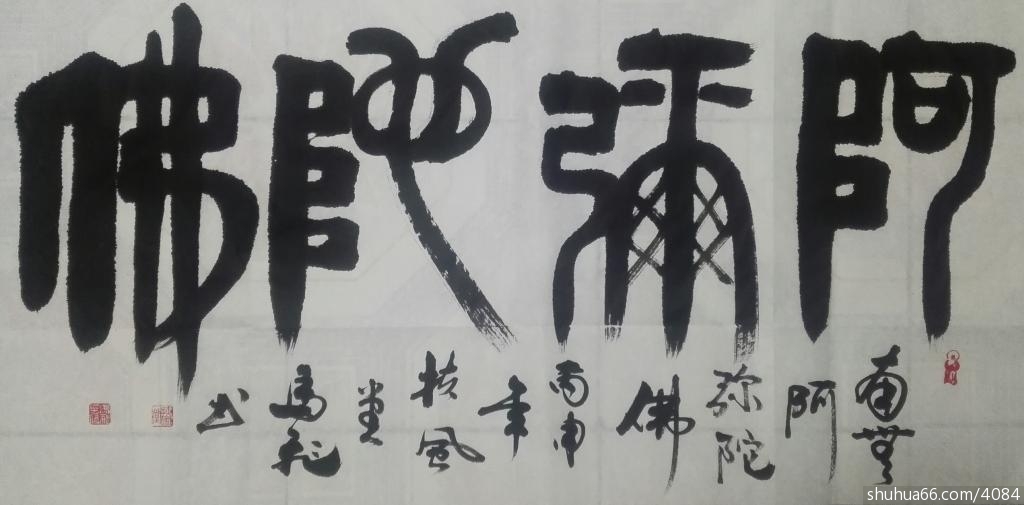 阿彌陀佛
南無
阿
弥陀
佛
丙申
年
扶風
堂
馬飛
书
shuhua66.com/4084